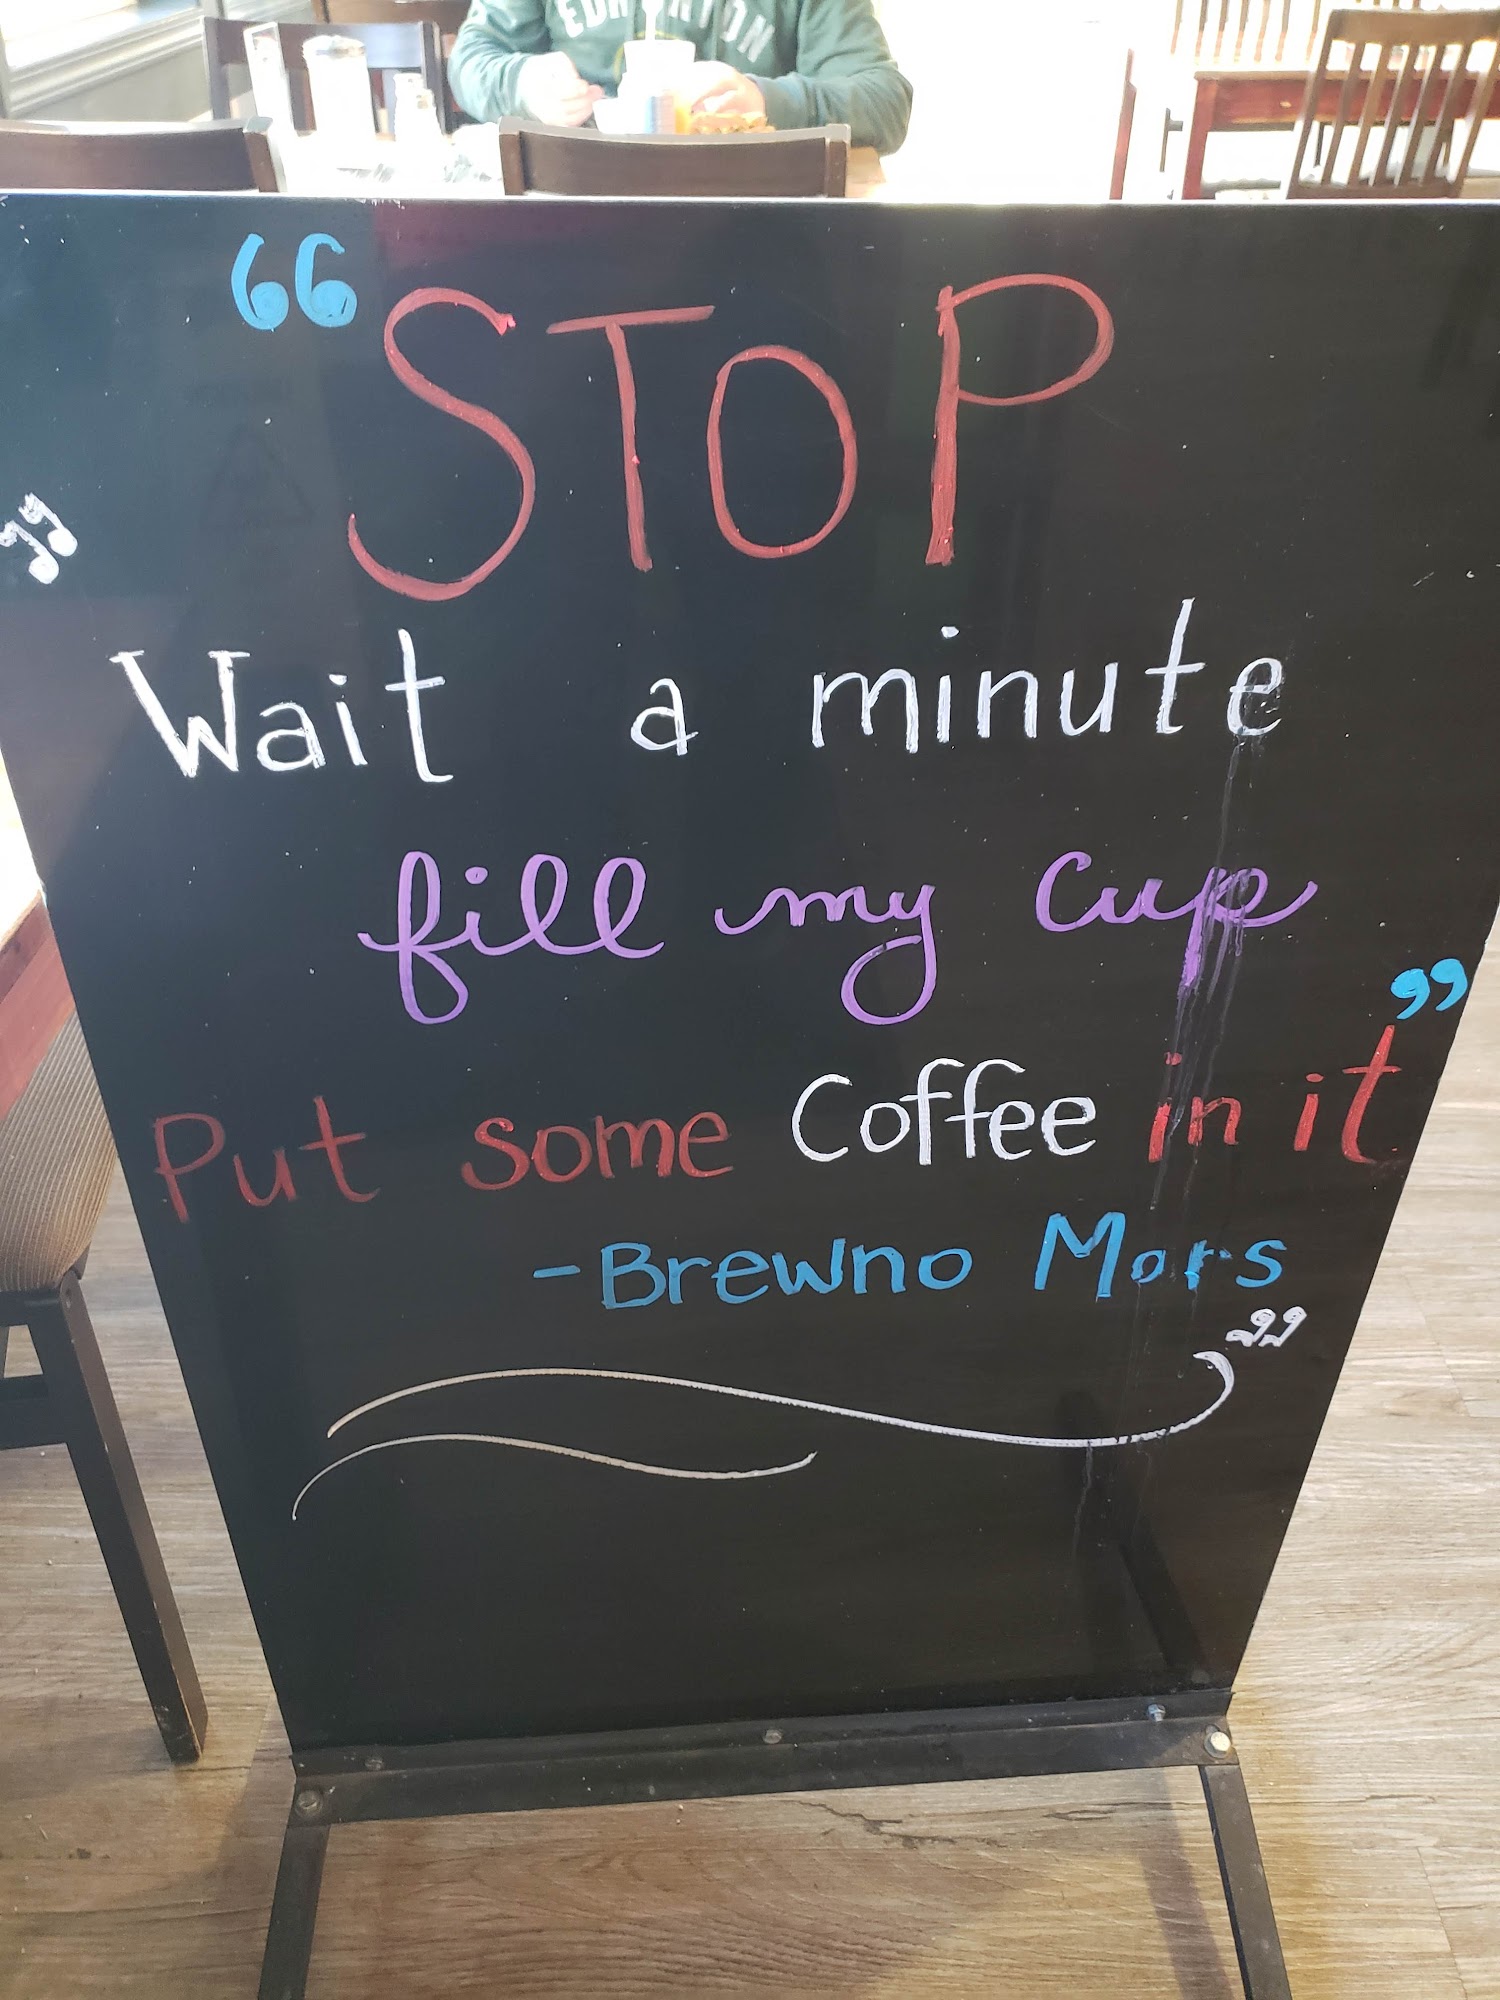 EDMONTON
“STOP
Wait a minute
fill my cup
Put some Coffee in it”
-Brewno Mars